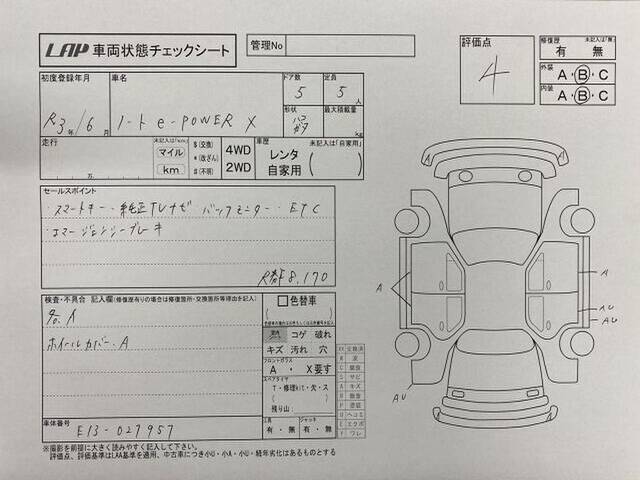 LAP 車両状態チェックシート
管理No
評価点
4
修復歴 未記入は「無」
有 無
外装 A・B・C
内装 A・B・C
初度登録年月
R3年/6月
車名
ノート e-POWER X
ドア数
5
定員
5人
形状
ハコ
最大積載量
kg
走行
万
未記入は「km」
マイル
km
$(交換)
*(改ざん)
#(不明)
4WD
2WD
車歴 未記入は「自家用」
レンタ
自家用
セールスポイント
・スマートキー・純正TVナビ バックモニター・ETC
・エマージェンシーブレーキ
R券 8,170
検査・不具合 記入欄(修復歴有りの場合は修復箇所・交換箇所等理由を記入)
各.A
ホイールカバー.A
色替車
室内シート
コゲ 破れ
キズ 汚れ 穴
フロントガラス
A ・ X要す
スペアタイヤ
T・修理kit・欠・ス
残り山:
工具
有・無
ジャッキ
有・無
XX 交換済
W 波
C 腐食
S サビ
A キズ
P 塗装
U ヘコミ
E エクボ
Y ワレ
車体番号
E13-027957
A
A
A
A
AU
AU
AU
※撮影を前提に大きく読みやすく記入して下さい。
評価点、評価基準はLAA基準を適用、中古車につき小U・小A・小U・経年劣化はあるものとする